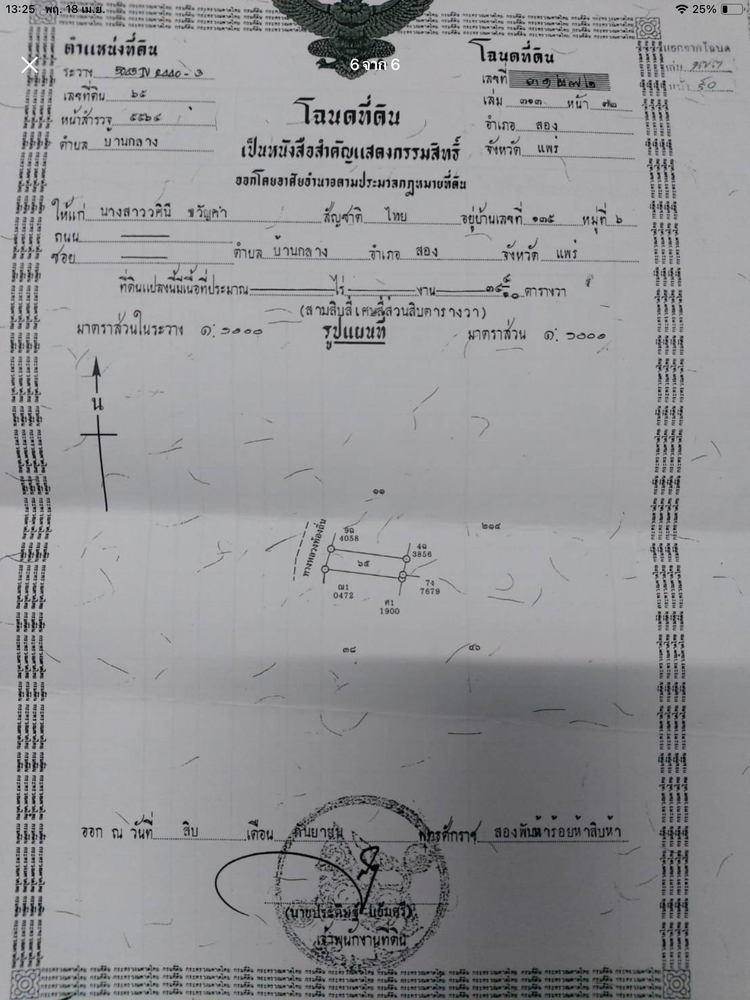 13:25 พฤ. 18 เม.ย. 25%
6 จาก 6
ตำแหน่งที่ดิน
ระวาง
เลขที่ดิน ๖๕
หน้าสำรวจ ๕๕๖๔
ตำบล บ้านกลาง
โฉนดที่ดิน
เลขที่
เล่ม ๓๑๓ หน้า ๗๒
อำเภอ สอง
จังหวัด แพร่
โฉนดที่ดิน
เป็นหนังสือสำคัญแสดงกรรมสิทธิ์
ออกโดยอาศัยอำนาจตามประมวลกฎหมายที่ดิน
ให้แก่ นางสาววศินี ขวัญคำ สัญชาติ ไทย อยู่บ้านเลขที่ ๑๓๕ หมู่ที่ ๖
ถนน
ซอย ตำบล บ้านกลาง อำเภอ สอง จังหวัด แพร่
ที่ดินแปลงนี้มีเนื้อที่ประมาณ ไร่ งาน ๓๔ ๔/๑๐ ตารางวา
(สามสิบสี่เศษสี่ส่วนสิบตารางวา)
มาตราส่วนในระวาง ๑:๑๐๐๐ รูปแผนที่ มาตราส่วน ๑:๑๐๐๐
น
๑๑
๒๑๔
ทางหลวงท้องถิ่น
9ฉ
4058
4ฉ
3856
๖๕
ฌ1
0472
7ง
7679
ศ1
1900
๓๘
๔๖
ออก ณ วันที่ สิบ เดือน กันยายน พุทธศักราช สองพันห้าร้อยห้าสิบห้า
(นายประดิษฐ์ แย้มศรี)
เจ้าพนักงานที่ดิน